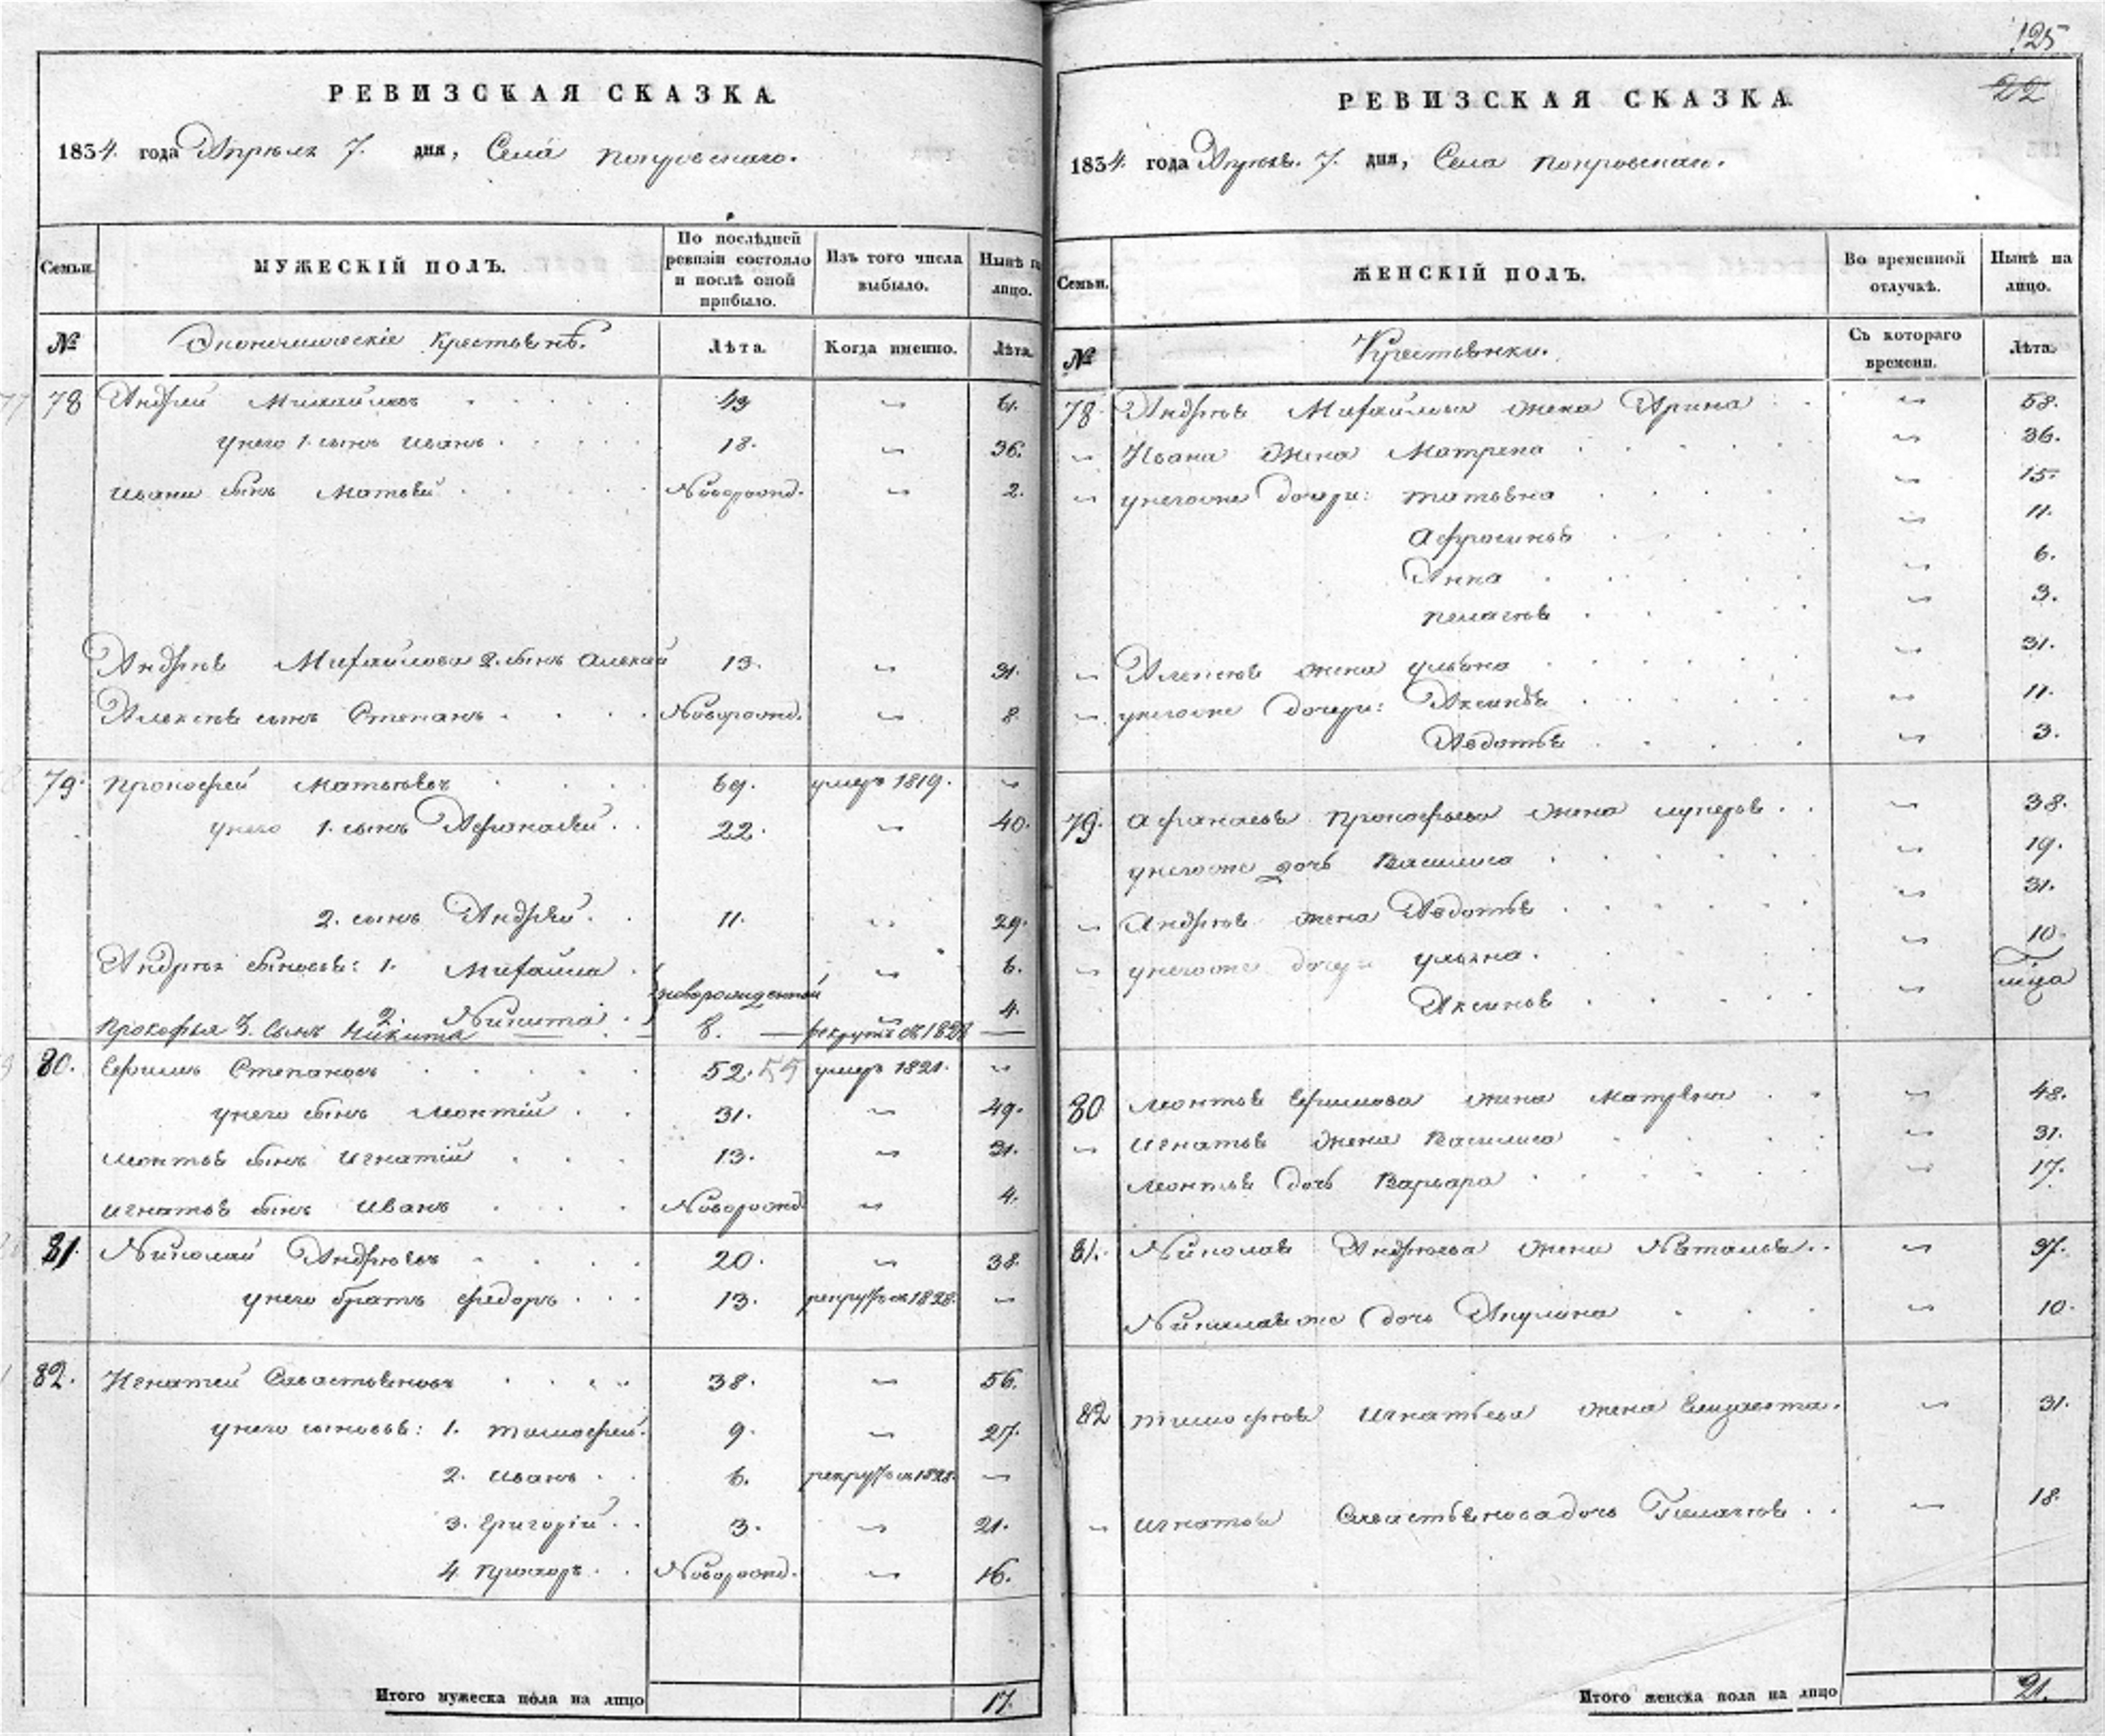 РЕВИЗСКАЯ СКАЗКА.
1834. года Апреля 7. дня, Села Покровскаго.
Семьи. МУЖЕСКІЙ ПОЛЪ. По послѣдней ревизіи состояло и послѣ оной прибыло. Изъ того числа выбыло. Нынѣ на лицо.
№ Экономическіе Крестьянѣ. Лѣта. Когда именно. Лѣта.
78 Андрей Михайловъ 43 61.
унего 1. сынъ Иванъ 18. 36.
Ивана сынъ Матвей Новорожд. 2.
Андрея Михайлова 2. сынъ Алексей 13. 31.
Алексея сынъ Степанъ Новорожд. 8
79. Прокофей Матвеевъ 69. умеръ 1819.
унего 1. сынъ Афанасей 22. 40.
2. сынъ Андрей 11. 29.
Андрея сыновья: 1. Михайла 6.
новорожденной
2. Никита 4.
Прокофья 3. Сынъ Никита 8. рекрутъ въ 1828
80. Ефимъ Степановъ 52. 55 умеръ 1821.
унего сынъ Леонтій 31. 49.
Леонтья сынъ Игнатій 13. 31.
Игнатья сынъ Иванъ Новорожд 4.
81. Николай Андреевъ 20. 38
унего братъ Федоръ 13. рекрутъ въ 1828.
82. Игнатей Савастьяновъ 38. 56.
унего сыновья: 1. Тимофей. 9. 27.
2. Иванъ 6. рекрутъ въ 1828.
3. Григорій 3. 21.
4. Прохоръ Новорожд. 16.
Итого мужеска пола на лицо 17.
125
22
РЕВИЗСКАЯ СКАЗКА.
1834. года Апреля. 7. дня, Села Покровскаго.
Семьи. ЖЕНСКІЙ ПОЛЪ. Во временной отлучкѣ. Нынѣ на лицо.
№ Крестьянки. Съ котораго времени. Лѣта.
78 Андрея Михайлова жена Арина 58.
Ивана жена Матрена 36.
унегоже дочери: Татьяна 15.
Афросинья 11.
Анна 6.
Пелагея 3.
Алексея жена Ульяна 31.
унегоже дочери: Аксинья 11.
Авдотья 3.
79. Афанасья Прокофьева жена Лукерья 38.
унегоже дочь Василиса 19.
Андрея жена Авдотья 31.
унегоже дочери Ульяна. 10
Аксинья
80 Леонтья Ефимова жена Матрена 48.
Игнатья жена Василиса 31.
Леонтья дочь Варвара 17.
81. Николая Андреева жена Наталья 37.
Николая же дочь Акулина 10.
82 Тимофея Игнатьева жена Елизавета. 31.
Игнатья Савастьянова дочь Пелагея 18.
Итого женска пола на лицо 21.